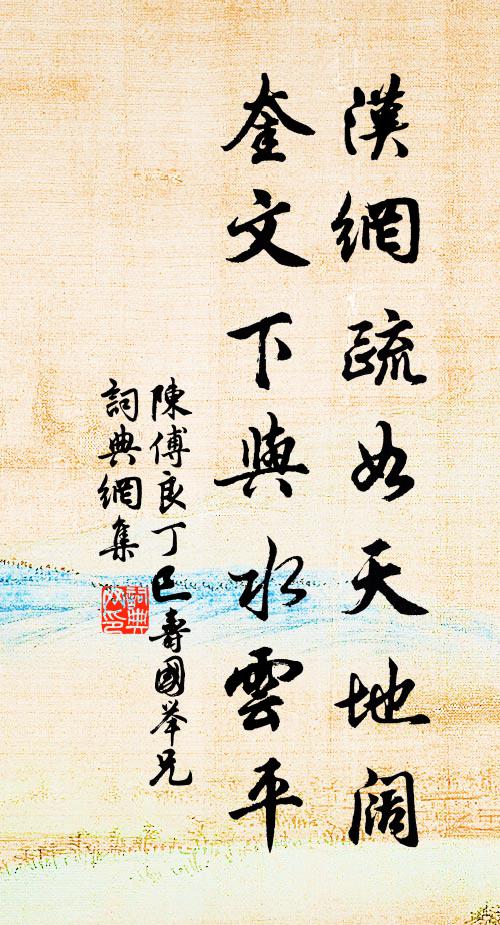 漢網疏如天地闊
奎文下與水雲平
陳傅良丁巳壽國舉兄
詞典網集